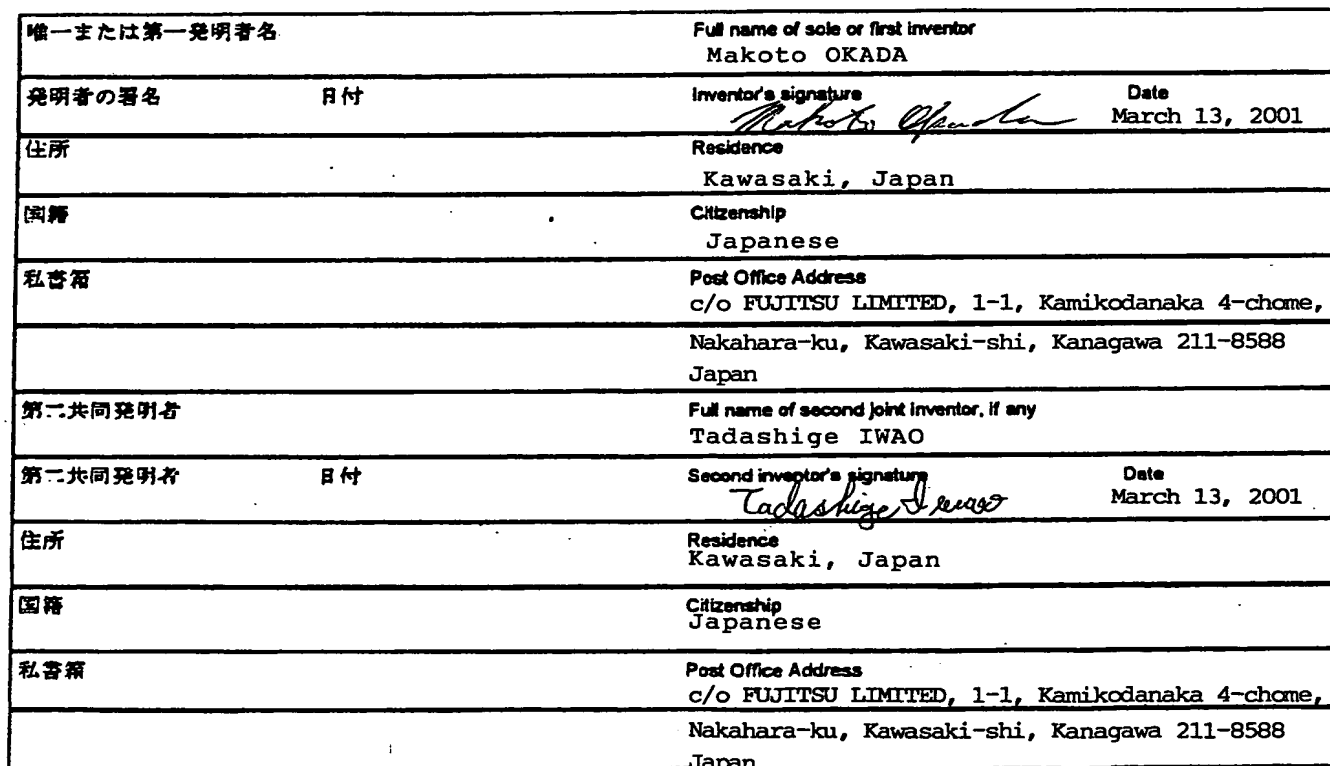 唯一または第一発明者名
Full name of sole or first inventor
Makoto OKADA
発明者の署名 日付
Inventor's signature Date
Makoto Okada March 13, 2001
住所
Residence
Kawasaki, Japan
国籍
Citizenship
Japanese
私書箱
Post Office Address
c/o FUJITSU LIMITED, 1-1, Kamikodanaka 4-chome,
Nakahara-ku, Kawasaki-shi, Kanagawa 211-8588
Japan
第二共同発明者
Full name of second joint inventor, if any
Tadashige IWAO
第二共同発明者 日付
Second inventor's signature Date
Tadashige Iwao March 13, 2001
住所
Residence
Kawasaki, Japan
国籍
Citizenship
Japanese
私書箱
Post Office Address
c/o FUJITSU LIMITED, 1-1, Kamikodanaka 4-chome,
Nakahara-ku, Kawasaki-shi, Kanagawa 211-8588
Japan